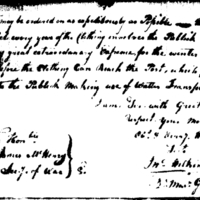 may be ordered on as expeditiously as Possible —
every year of the Clothing involves the Publick
great extraordinary Expense for the winter
before the Clothing Can Reach the Post, which
to the Publick Making use of Water Transpor
I am, Sir, with Great
Respect Your Mo
Obt. & Humy. 
Honble
James McHenry
Secy. of War
Jno. Wilkins